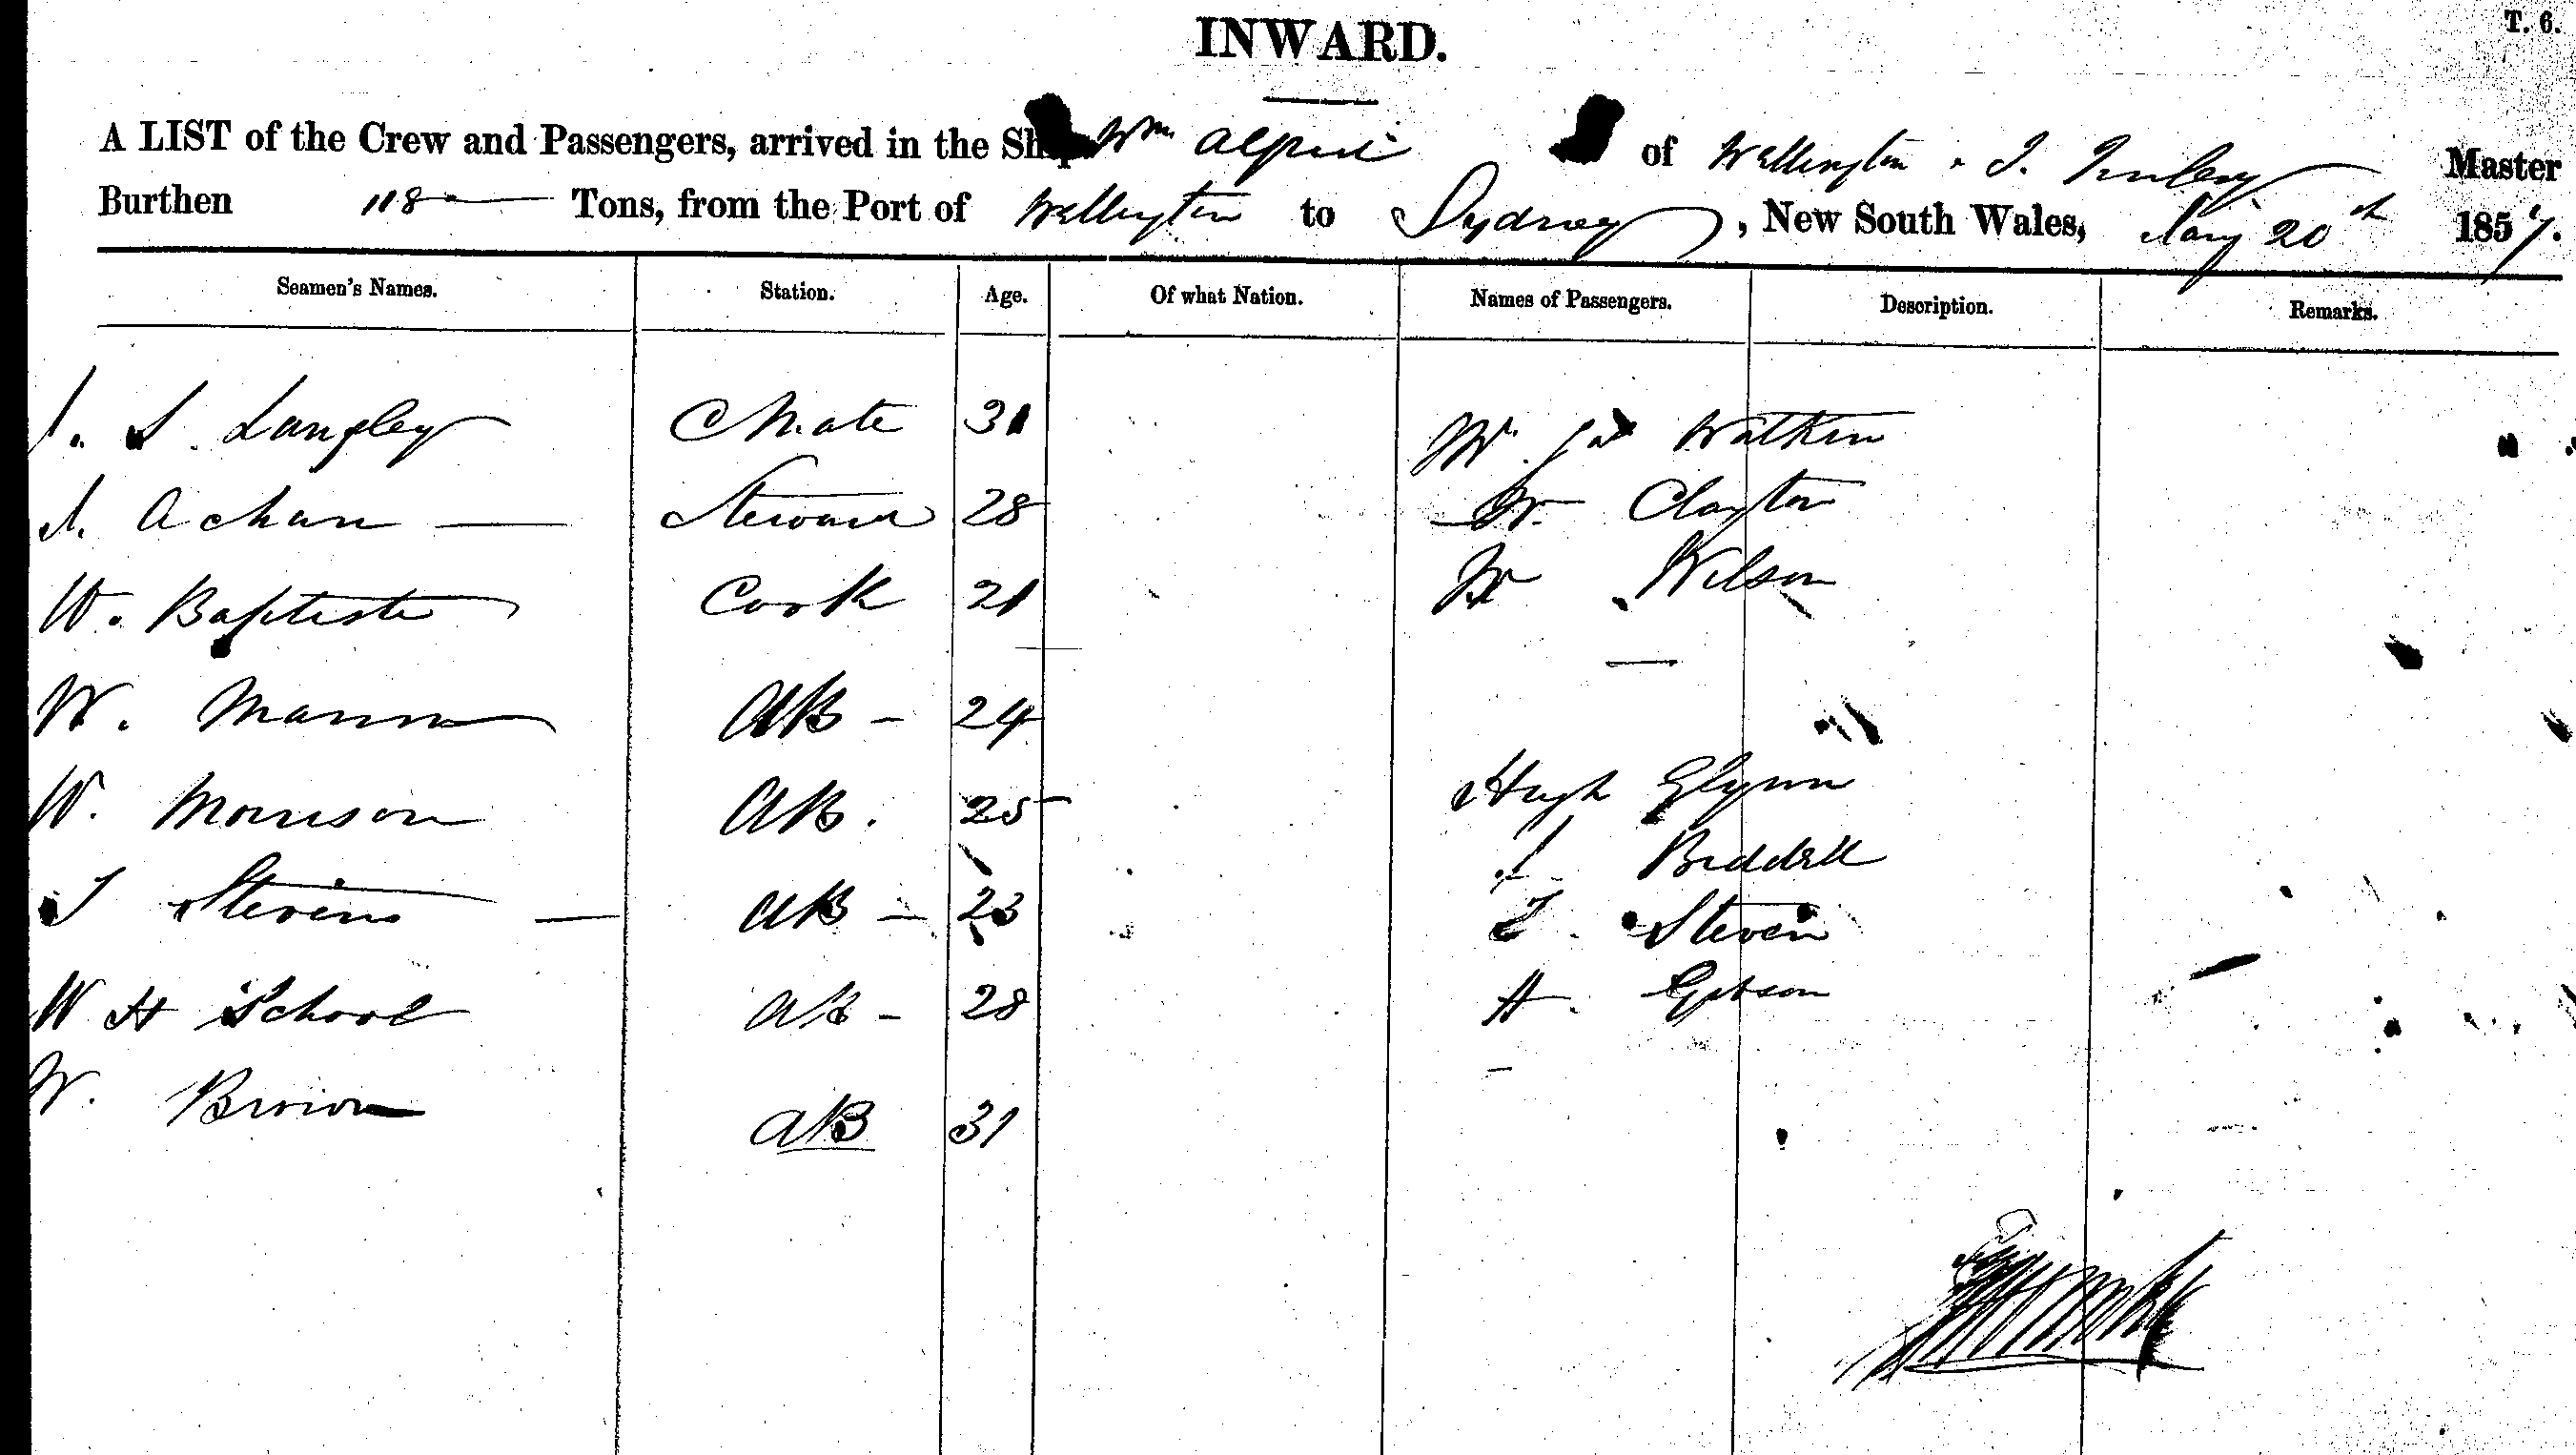 T. 6.
INWARD.
A LIST of the Crew and Passengers, arrived in the Ship Wm Alfred of Wellington, Master
Burthen 118 Tons, from the Port of Wellington to Sydney, New South Wales, Jany 20th 1857.
Seamen's Names. Station. Age. Of what Nation. Names of Passengers. Description. Remarks.
J. S. Langley C Mate 31 Mr Jas Watkin
Steward 28 Mr Clayton
W. Baptiste Cook 21 Mr Wilson
W. Mann AB - 24
W. Morrison AB. 25 Hugh Glynn
J Stevens AB - 23 J. Biddell
W H School AB - 28 T. Steven
W. Brown AB 31 H. Gibson